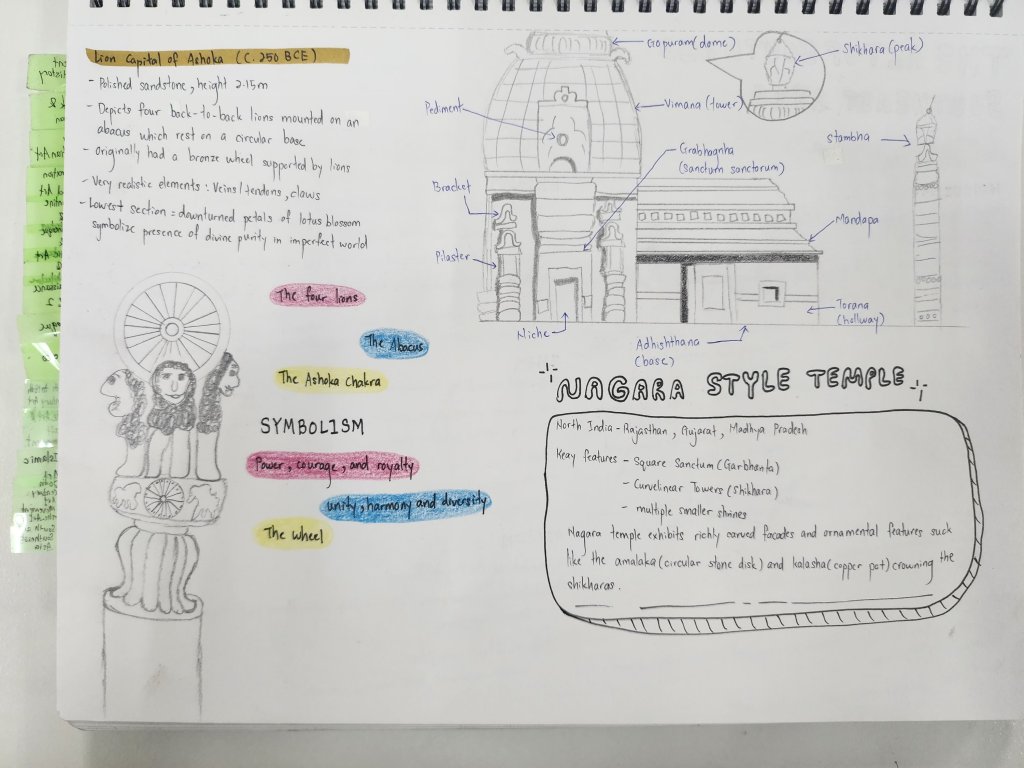 Lion Capital of Ashoka (C. 250 BCE)
- Polished sandstone, height 2.15m
- Depicts four back-to-back lions mounted on an
abacus which rest on a circular base
- Originally had a bronze wheel supported by lions
- Very realistic elements : Veins/tendons, claws
- Lowest section = downturned petals of lotus blossom
symbolize presence of divine purity in imperfect world
The four lions
The Abacus
The Ashoka chakra
SYMBOLISM
Power, courage, and royalty
unity, harmony and diversity
The wheel
Gopuram (dome)
Shikhara (peak)
Pediment
Vimana (tower)
Stambha
Grabhagriha
(sanctum sanctorum)
Bracket
Mandapa
Pilaster
Torana
(hallway)
Niche
Adhishthana
(base)
NAGARA STYLE TEMPLE
North India - Rajasthan, Gujarat, Madhya Pradesh
Keay features - Square Sanctum (Garbhanla)
- Curvelinear Towers (Shikhara)
- multiple smaller shrines
Nagara temple exhibits richly carved facades and ornamental features suck
like the amalaka (circular stone disk) and kalasha (copper pot) crowning the
shikharas.